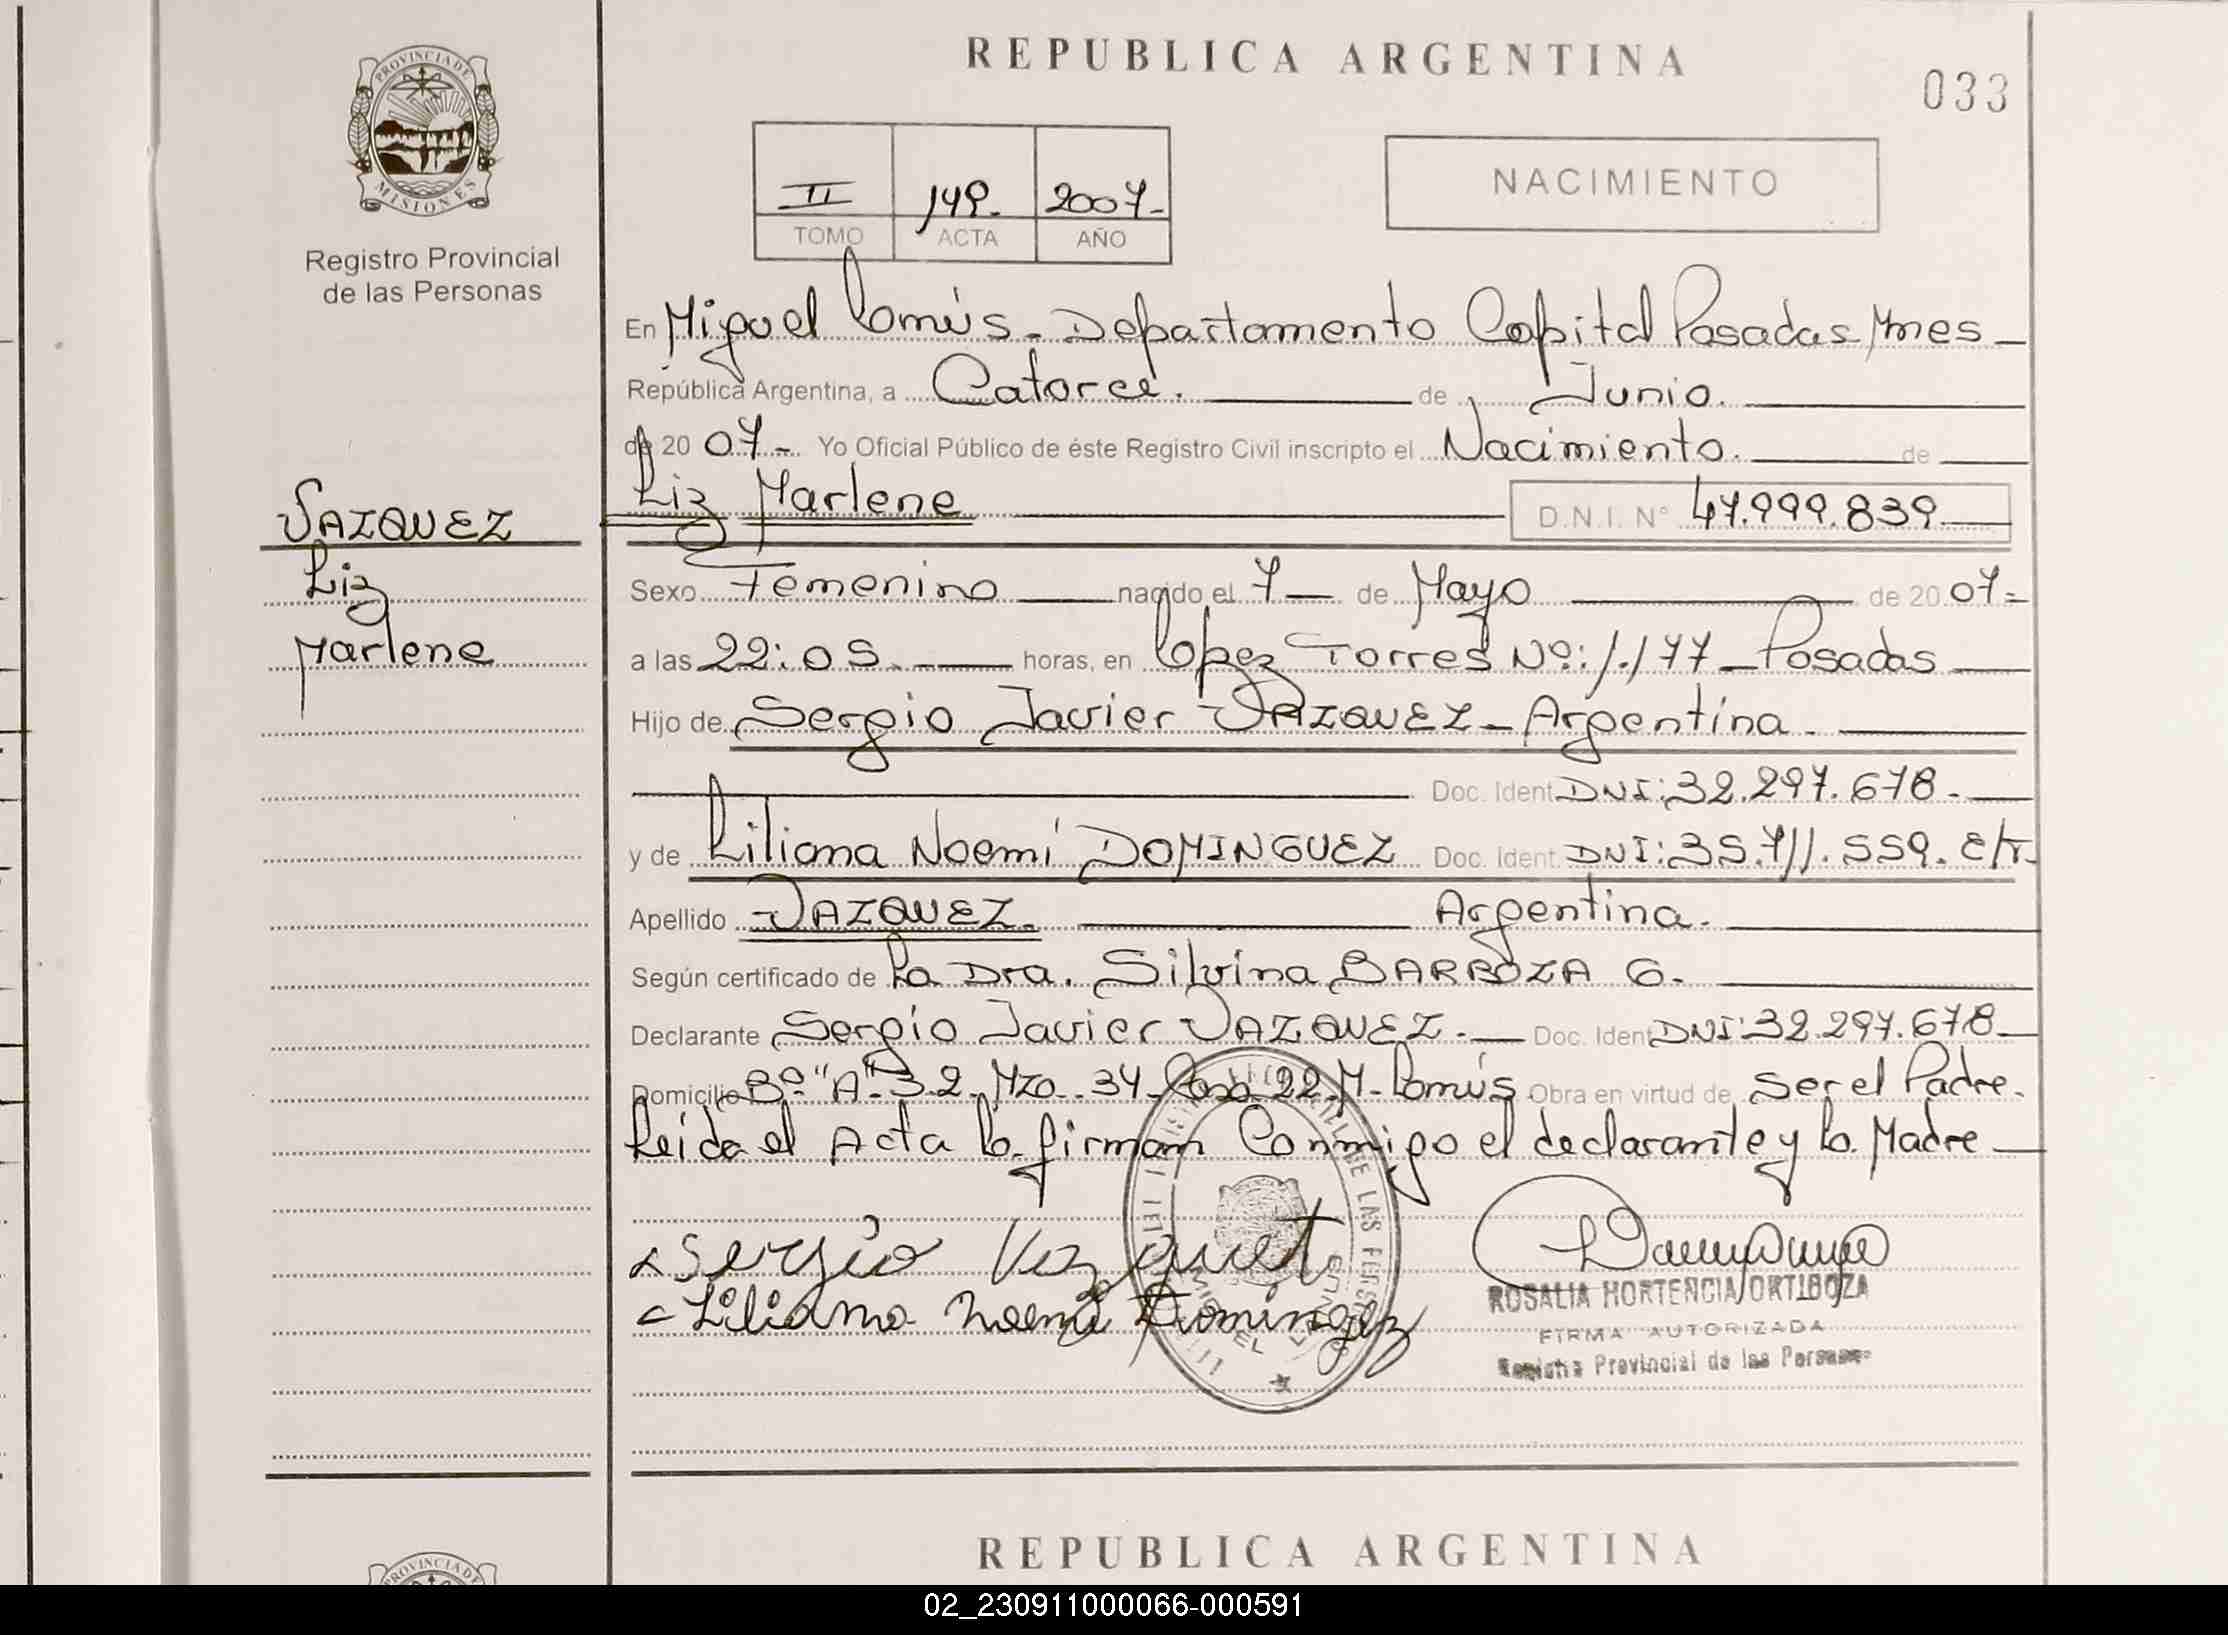 REPUBLICA ARGENTINA
033
PROVINCIA DE
MISIONES
Registro Provincial
de las Personas
II 149. 2007-
TOMO ACTA AÑO
NACIMIENTO
En Miguel Lanús - Departamento Capital Posadas Mnes
República Argentina, a Catorce. de Junio.
de 20 07- Yo Oficial Público de éste Registro Civil inscripto el Nacimiento. de
Liz Marlene D.N.I. Nº 47.999.839
VAZQUEZ
Liz
Marlene
Sexo Femenino nacido el 7 de Mayo de 20 07-
a las 22:05. horas, en López Torres Nº: 1.177 - Posadas
Hijo de Sergio Javier VAZQUEZ - Argentina.
Doc. Ident DNI: 32.297.678.
y de Liliana Noemí DOMINGUEZ Doc. Ident. DNI: 35.711.559. E/T.
Apellido VAZQUEZ. Argentina.
Según certificado de La Dra. Silvina BARBOZA G.
Declarante Sergio Javier VAZQUEZ. Doc. Ident DNI: 32.297.678
Domicilio Bº. "A" 3.2. Mzo. 34 - Casa 22 M. Lanús Obra en virtud de Ser el Padre.
Leída el Acta la firman Conmigo el declarante y la Madre
Sergio Vazquez
Liliana Noemi Dominguez
DE LAS PERSONAS
MIGUEL
ROSALIA HORTENCIA ORTIGOZA
FIRMA AUTORIZADA
Registro Provincial de las Personas
REPUBLICA ARGENTINA
PROVINCIA DE
02_230911000066-000591